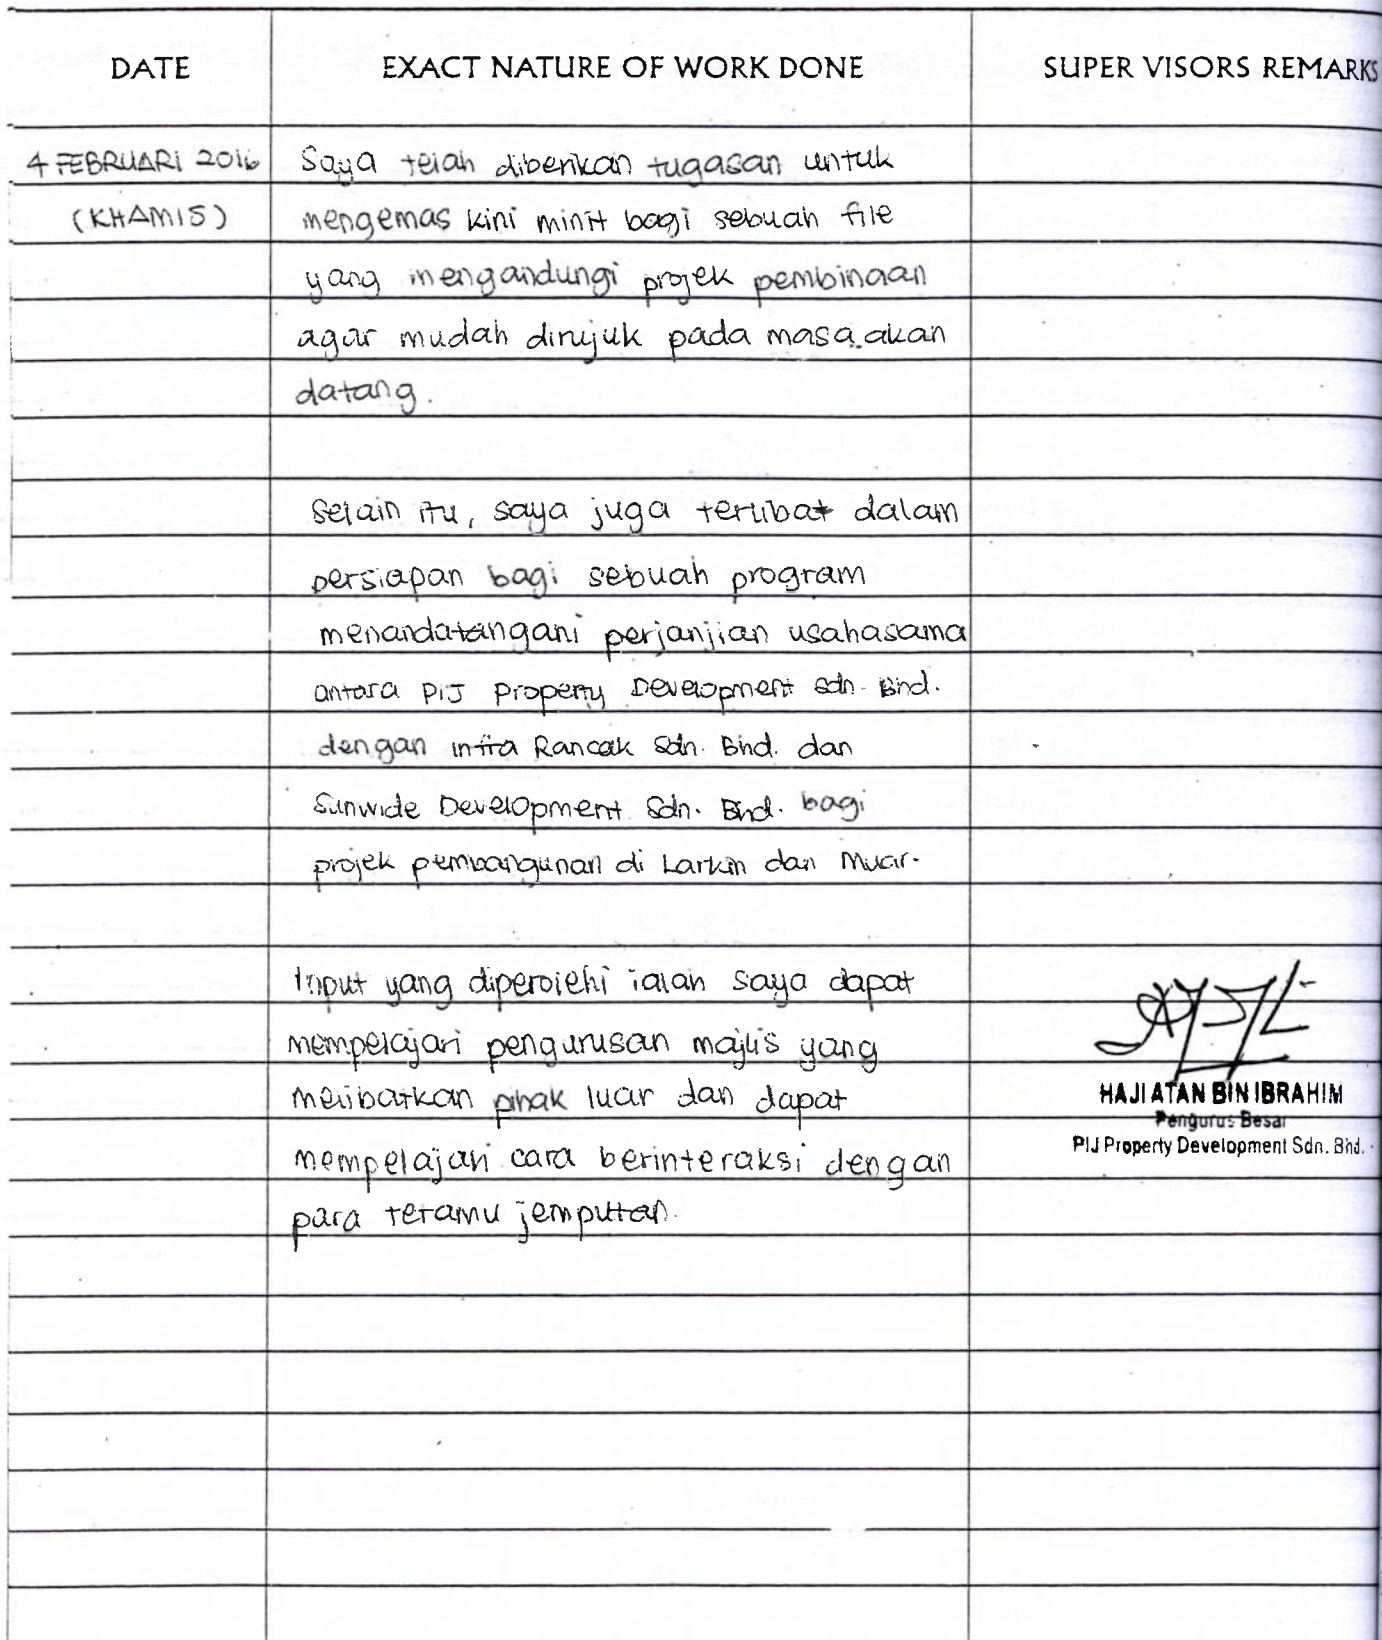 DATE EXACT NATURE OF WORK DONE SUPER VISORS REMARKS
4 FEBRUARI 2016 Saya telah diberikan tugasan untuk
(KHAMIS) mengemas kini minit bagi sebuah file
yang mengandungi projek pembinaan
agar mudah dirujuk pada masa akan
datang.
Selain itu, saya juga terlibat dalam
persiapan bagi sebuah program
menandatangani perjanjian usahasama
antara PIJ Property Development Sdn. Bhd.
dengan Infra Rancak Sdn. Bhd. dan
Sunwide Development Sdn. Bhd. bagi
projek pembangunan di Larkin dan Muar.
Input yang diperolehi ialah saya dapat
mempelajari pengurusan majlis yang
melibatkan pihak luar dan dapat
mempelajari cara berinteraksi dengan
para tetamu jemputan.
HAJI ATAN BIN IBRAHIM
Pengurus Besar
PIJ Property Development Sdn. Bhd.